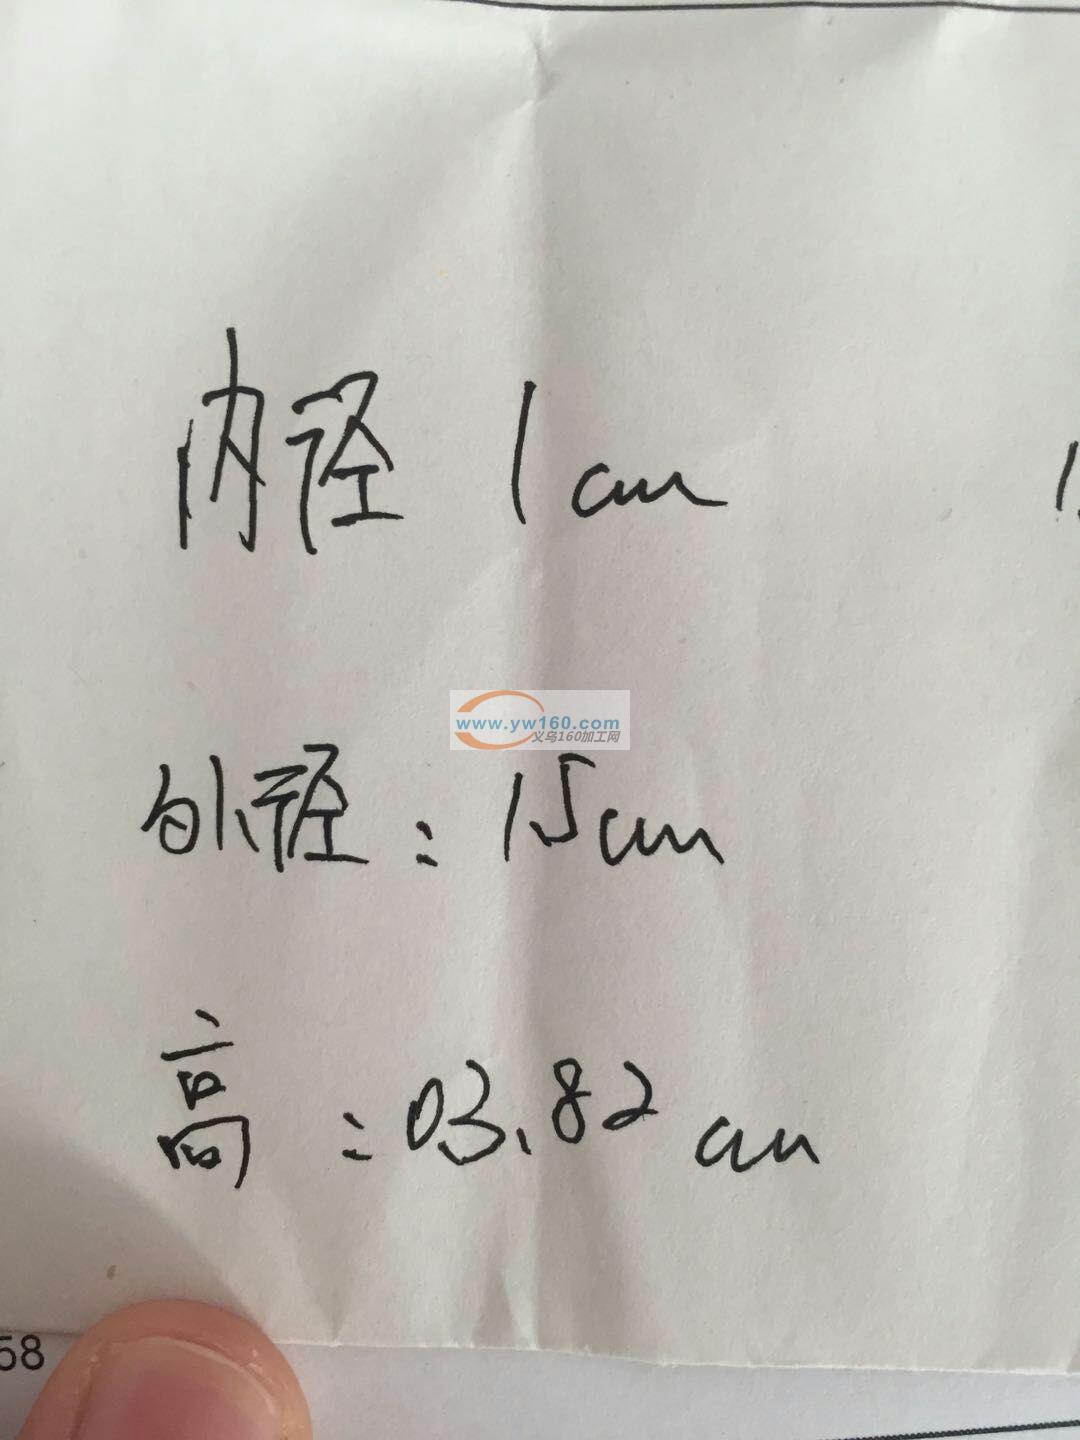 内径 1cm
www.yw160.com
义乌160加工网
外径：15cm
高：03.82cm
58